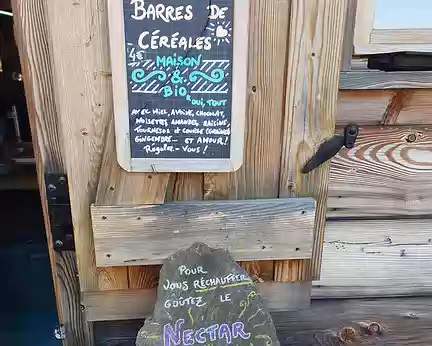 BARRES DE
CÉRÉALES
4€ MAISON
&
BIO
OUI, TOUT
AVEC MIEL, AVOINE, CHOCOLAT,
NOISETTES AMANDES RAISINS,
TOURNESOL & COURGE (GRAINES)
GINGEMBRE... ET AMOUR!
Régalez-Vous!
POUR
VOUS RÉCHAUFFER
GOÛTEZ LE
NECTAR